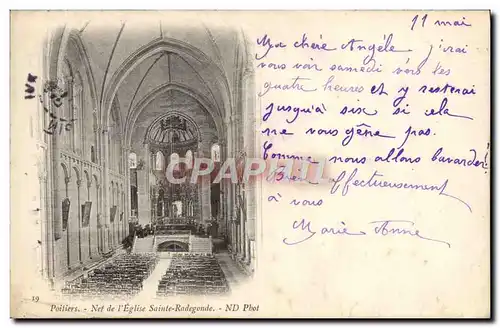 11 mai
Ma chère Angèle j'irai
vous voir samedi vers les
quatre heures et y resterai
jusqu'à six si cela
ne vous gêne pas.
Comme nous allons bavarder!
Bien affectueusement
à vous
Marie Anne
CPARAMA
19
Poitiers. - Nef de l'Église Sainte-Radegonde. - ND Phot